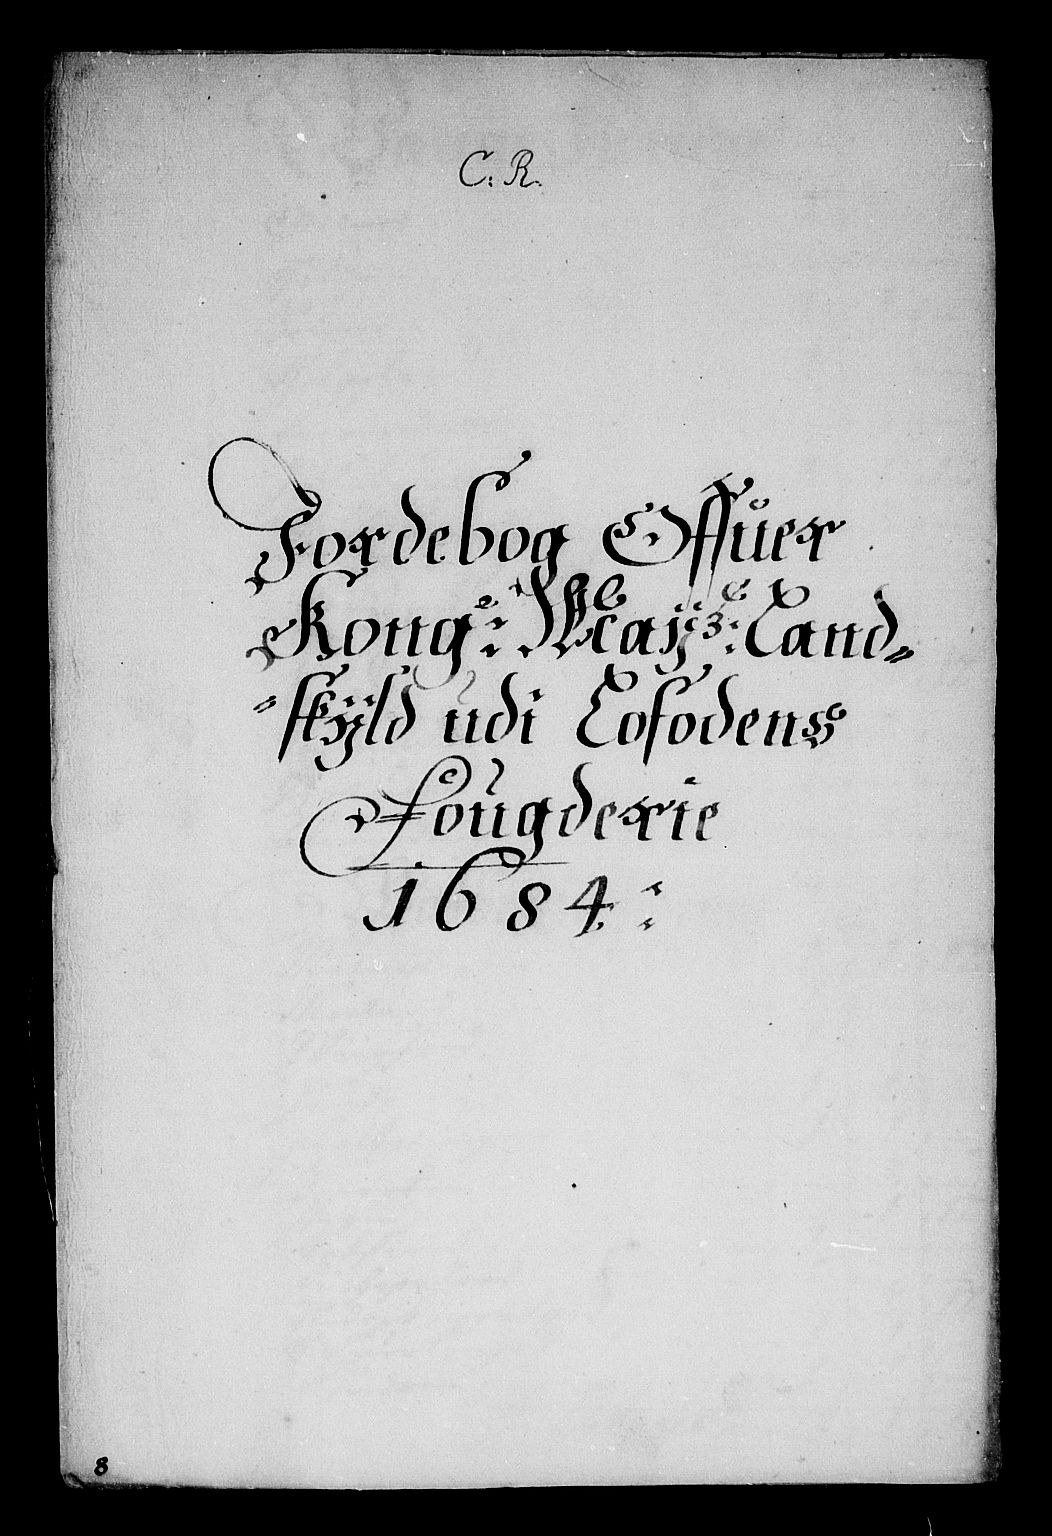 C. R.
Jordebog Offuer
Kong: Maÿ: Land-
skÿld udi Lofodens
Fougderie
1684:
8